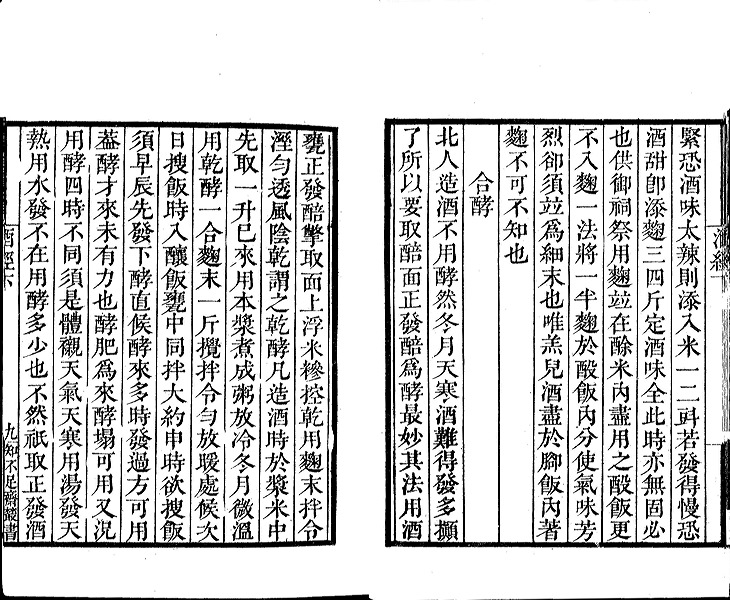 緊恐酒味太辣則添入米一二㪷若發得慢恐
酒甜卽添麴三四斤定酒味全此時亦無固必
也供御祠祭用麴竝在酴米內盡用之酘飯更
不入麴一法將一半麴於酘飯內分使氣味芳
烈卻須竝爲細末也唯羔兒酒盡於腳飯內著
麴不可不知也
合酵
北人造酒不用酵然冬月天寒酒難得發多攧
了所以要取醅面正發醅爲酵最妙其法用酒
甕正發醅撆取面上浮米糝控乾用麴末拌令
溼勻透風陰乾謂之乾酵凡造酒時於漿米中
先取一升已來用本漿煮成粥放冷冬月微溫
用乾酵一合麴末一斤攪拌令勻放暖處候次
日搜飯時入釀飯甕中同拌大約申時欲搜飯
須早辰先發下酵直候酵來多時發過方可用
葢酵才來未有力也酵肥爲來酵塌可用又況
用酵四時不同須是體襯天氣天寒用湯發天
熱用水發不在用酵多少也不然祇取正發酒
酒經下
九知不足齋叢書